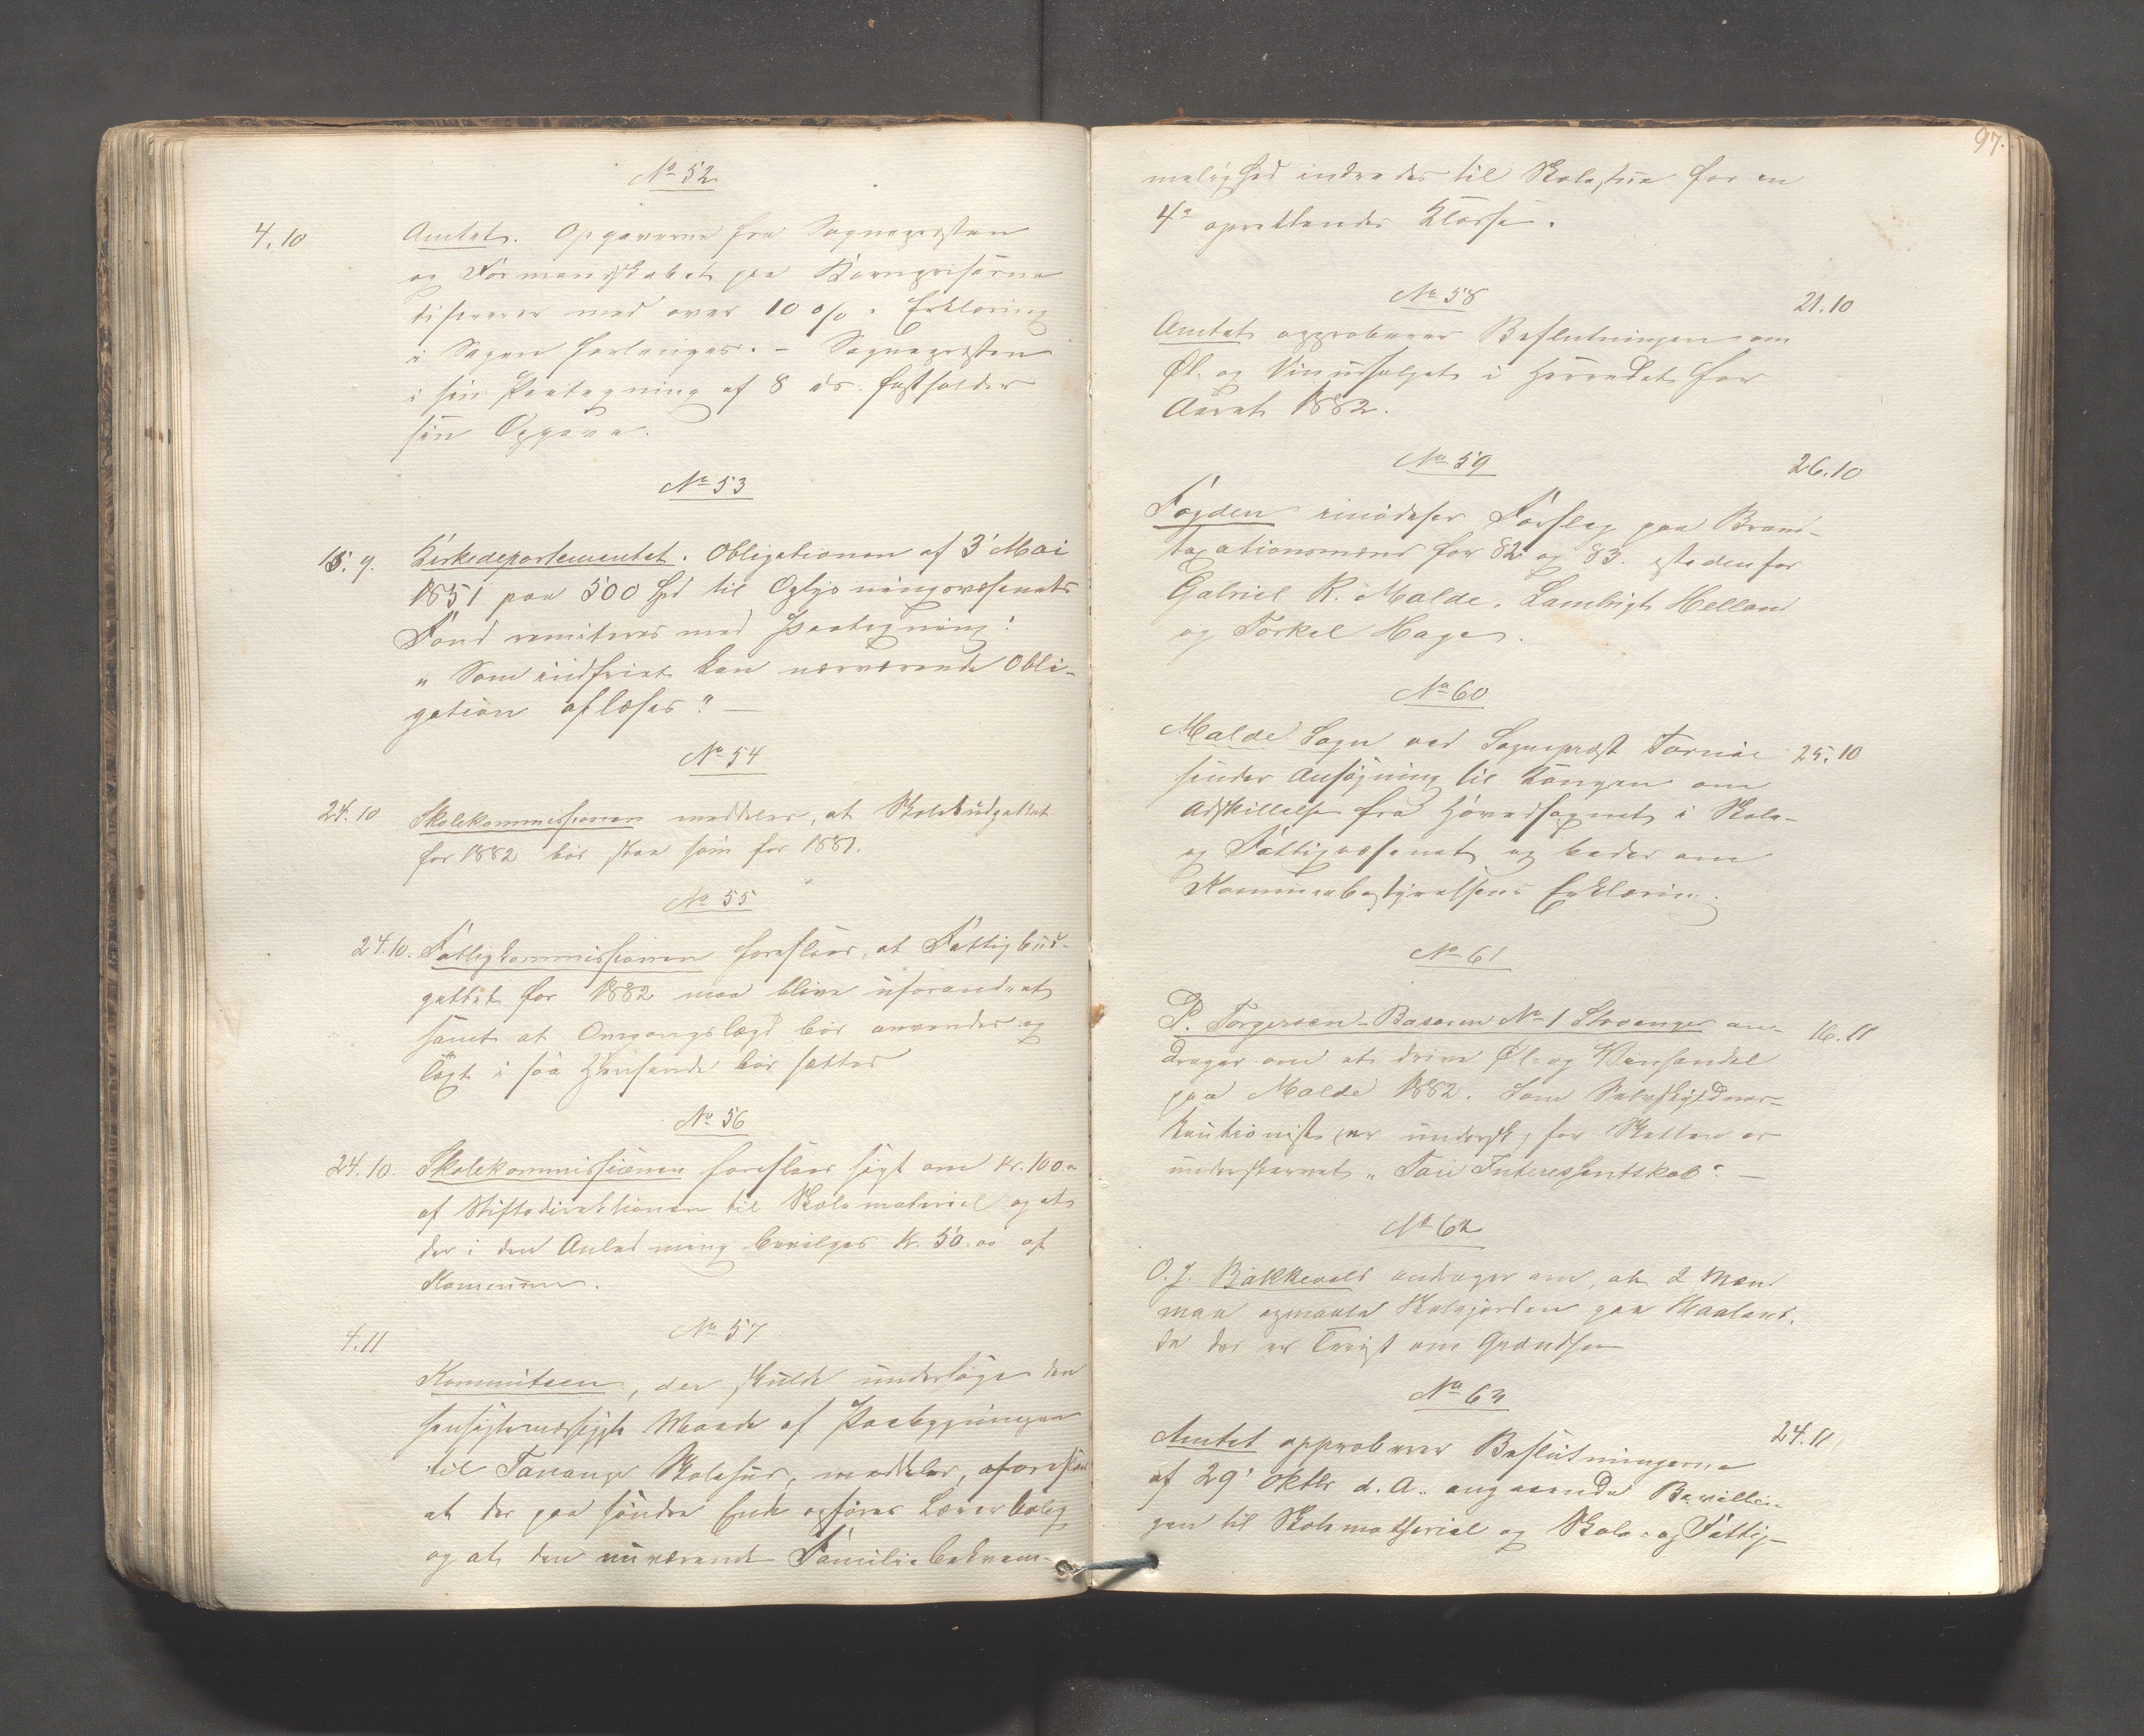 No 52
4.10 Amtet. Opgaverne fra Sognepresten
og Formandskabet paa Kornpriserne
differerer med over 10 o/o. Erklæring
i Sagen forlanges. - Sognepresten
i sin Paategning af 8 ds. fastholder
sin Opgave.
No 53
15. 9. Kirkedepartementet. Obligationen af 3' Mai
1851 paa 500 Spd til Oplysningsvæsenets
Fond remiteres med Paategning:
" Som indfriet kan nærværende Obli-
gation aflæses". -
No 54
24.10 Skolekommissionen meddeler, at Skolebudgettet
for 1882 bør staa som for 1881.
No 55
24.10. Fattigkommissionen foreslaar, at Fattigbud-
gettet for 1882 maa blive uforandret
samt at Omgangslægd bør anvendes og
Lægd i saa Henseende bør sættes
No 56
24.10. Skolekommissionen foreslaar søgt om Kr. 100.-
af Stiftsdirektionen til Skolemateriel og at
der i den Anledning bevilges Kr. 50.00 af
Kommunen.
No 57
4.11
Kommiteen, der skulde undersøge den
hensigtsmæssigste Maade af Paabygningen
til Tananger Skolehus, meddeler, foreslaar
at der paa søndre Ende opføres Lærerbolig
og at den nuværende Familiebekvem-
97.
melighed indredes til Skolestue for en
4de oprettendes Klasse.
No 58
21.10
Amtet approberer Beslutningen om
Øl- og Vinudsalget i Herredet for
Aaret 1882.
No 59
26.10
Fogden Forslag paa Brand-
taxationsmænd for 82 og 83. istedenfor
Gabriel R. Malde, Lambrigt Helland
og Torkel Hage.
No 60
Malde Sogn ved Sogneprest Tornøe 25.10
sender Ansøgning til Kongen om
Adskillelse fra Hovedsognet i Skole-
og Fattigvæsenet og beder om
Kommunebestyrelsens Erklæring.
No 61
P. Torgersen - Basaren No 1 Stavanger an- 16.11
drager om at drive Øl- og Vinhandel
paa Malde 1882. Som Selvskyldner-
kautionist for Skatten er
underskrevet " Interessentskab". -
No 62
O. J. Bakkevold andrager om, at 2 Mænd
maa opmaale Skolejorden paa Maaland.
da der er Tvist om Grændsen
No 63
24.11
Amtet approberer Beslutningerne
af 29' Oktbr d. A. angaaende Bevillin-
gen til Skolemateriel og Skole- og Fattig-